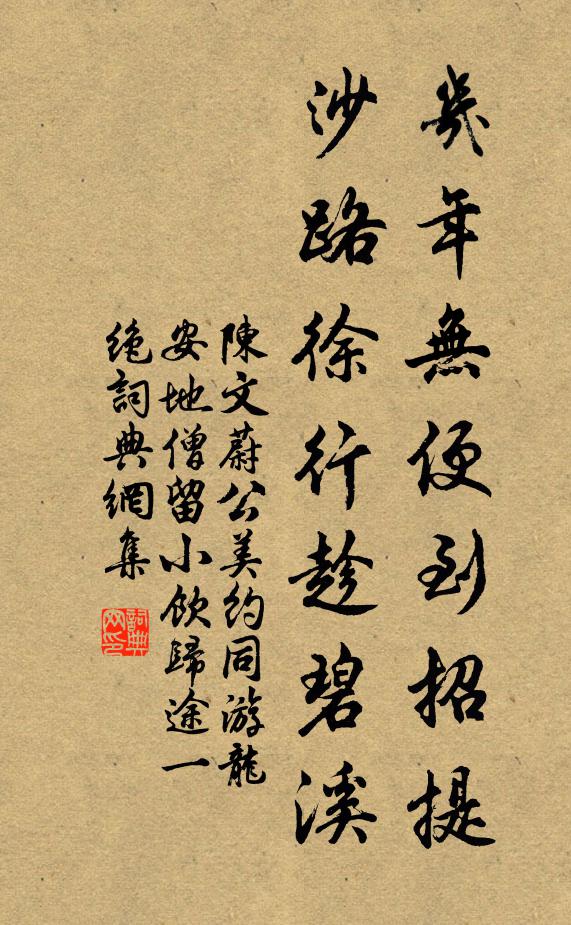 幾年無便到招提
沙路徐行趁碧溪
陳文蔚公美約同游龍
安地僧留小飲歸途一
絶詞典網集
詞典网印